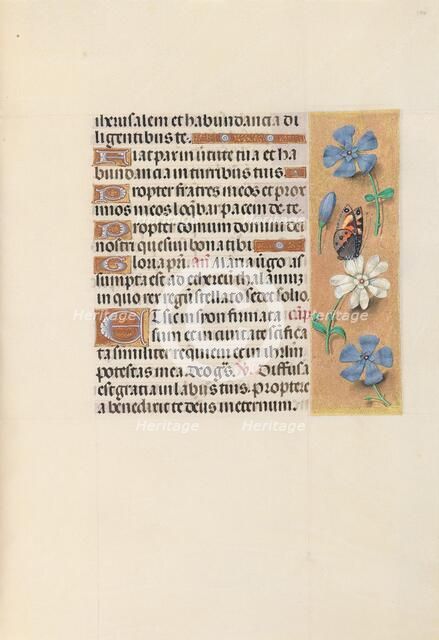 iherusalem et habundancia di
ligentibus te.
Fiat pax in v̄tute tua et ha
bundancia in turribus tuis
Propter fratres meos et prox
imos meos loq̄bar pacem de te.
Propter domum domini dei
nostri quesiui bona tibi
Gloria pr̄i. añ Maria v̄go as
sumpta est ad ethereū thalamū
in quo rex regū stellato sedet solio.
Et sic in syon firmata cāp
sum et in ciuitate sc̄ifica
ta similiter requieui et in ihrl̄m
potestas mea. Deo gr̄s. Diffusa
est gratia in labiis tuis. Proptere
a benedixit te deus in eternum.
Heritage
Heritage
Heritage
Heritage
Heritage
Heritage